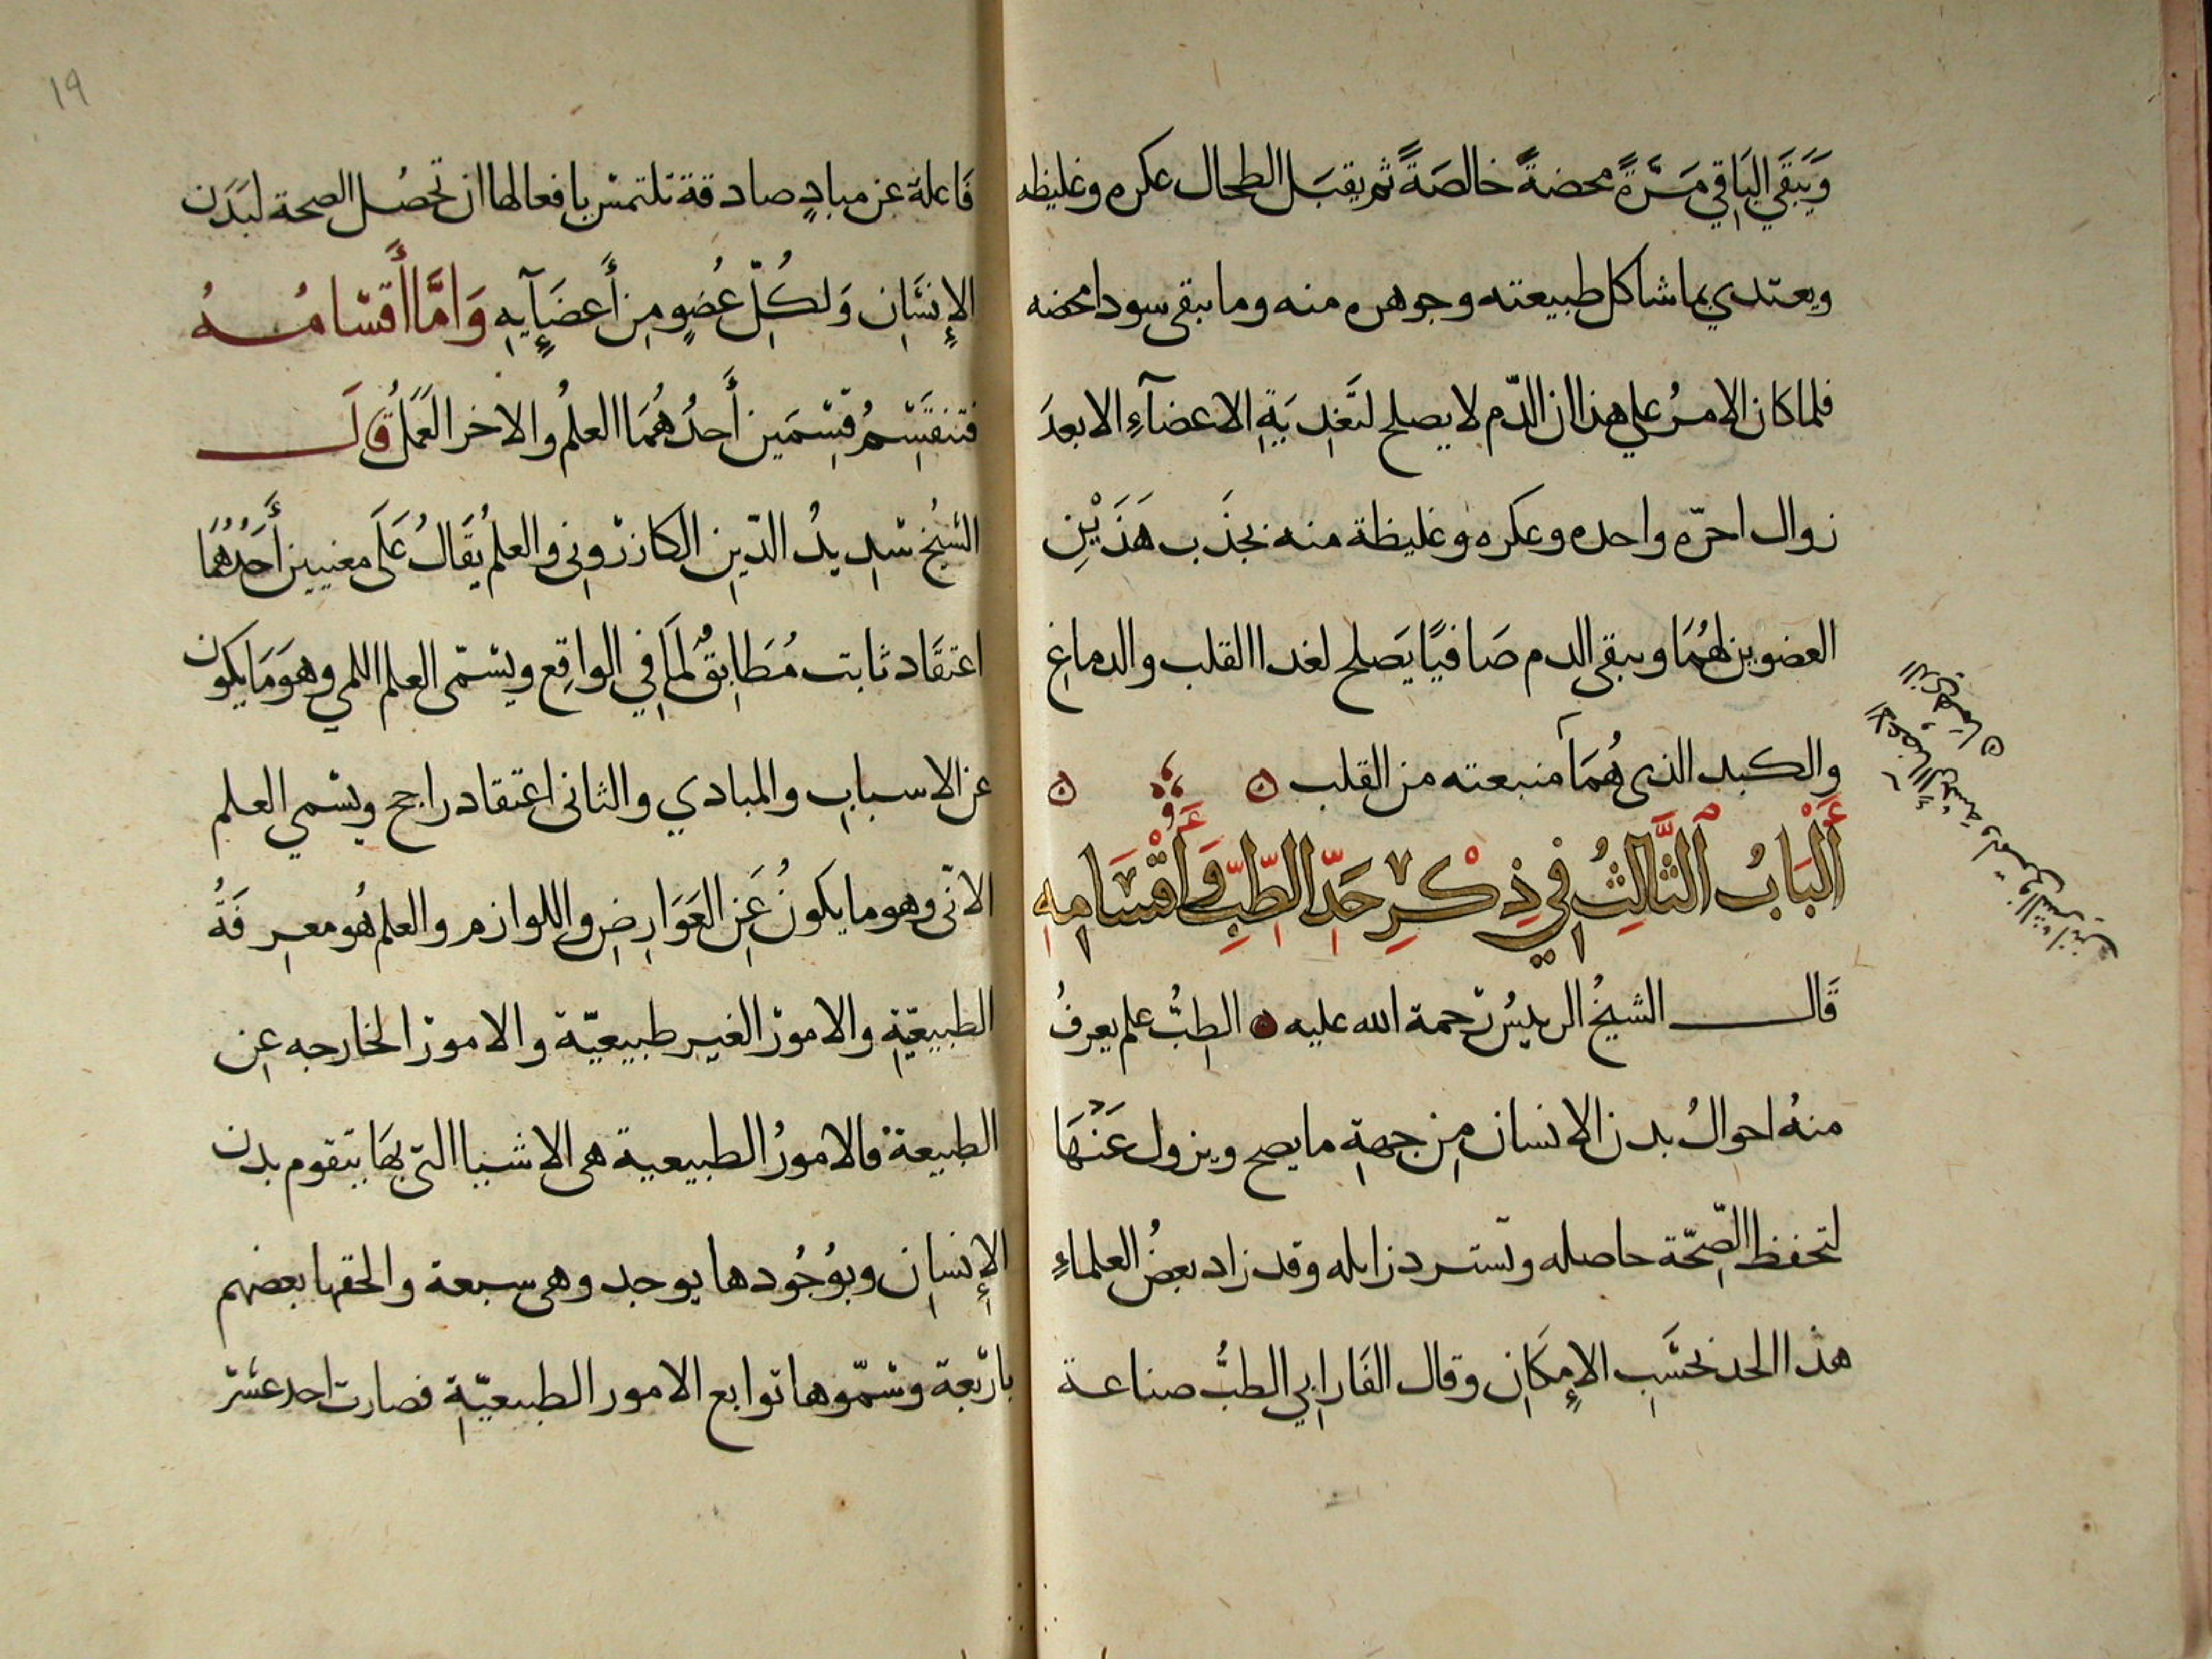 وَيَبقَي البَاقِي مَرَّةً محضةً خالصَةً ثم يقبَل الطحال عكره وغليظه
ويعتدي بما شاكل طبيعته وجوهره منه وما يبقى سودا محضه
فلما كان الامرُ علي هذا ان الدّم لا يصلح لتَغدِيَةِ الاعضآءِ الا بعدَ
زوال احرّه واحده وعكره وغليظة منه بجذَب هَذَيْنِ
العضوين لهُمَا ويبقي الدم صَافيًا يَصلح لغدا القلب والدماغِ
والكبد الذى هُمَا منبعته من القلب
أَلبَابُ الثَّالِثُ فِي ذِكْرِ حَدِّ الطِّبِّ وَأَقْسَامِهِ
قَال الشيخُ الرييسُ رحمة الله عليه الطِبُّ علم يعرفُ
منهُ احوالُ بدن الانسان مِن جِهةِ ما يصح ويزول عَنْهَا
لتحفظ الصِّحّة حاصله وتسترد زايله وقد زاد بعضُ العلماءِ
هذا الحد بحَسَبِ الإمكَانِ وقال الفَارابِي الطبُّ صناعة
١٩
فَاعلة عن مبادٍ صادقة تلتمس بافعالها ان تحصُل الصحة لبَدَن
الإِنسَانِ وَلِكُلّ عُضوٍ مِن أَعضَآيِهِ وَامَّا أَقسَامُهُ
فتنقَسِمُ قِسْمَين أَحدُهُمَا العلمُ والاخر العَمَلُ قَالَ
الشيُخ سَدِيدُ الدّينِ الكازرُونِى والعلمُ يُقَالُ عَلَى معنيين أَحَدُهُمَا
اعتقَاد ثابت مُطَابِقٌ لمَا فِي الواقِع ويسمّى العلم اللمي وهوَ مَا يكون
عن الاسبابِ والمبادي والثانى اعتقاد راجح ويسمي العلم
الانّى وهو ما يكونُ عَنِ العَوَارِضِ واللوازم والعلم هُو معرِفَةُ
الطبيعّيةِ والامورُ الغير طبيعيّة والامورُ الخارجه عِن
الطبيعة فالامورُ الطبيعية هى الاشيا التى بهَا يتقوم بدن
الإِنسانِ وبوُجُودها يوجد وهى سبعة والحقها بعضهم
باربَعة وسّموها توابع الامور الطبيعيّةِ فصارت احد عشر